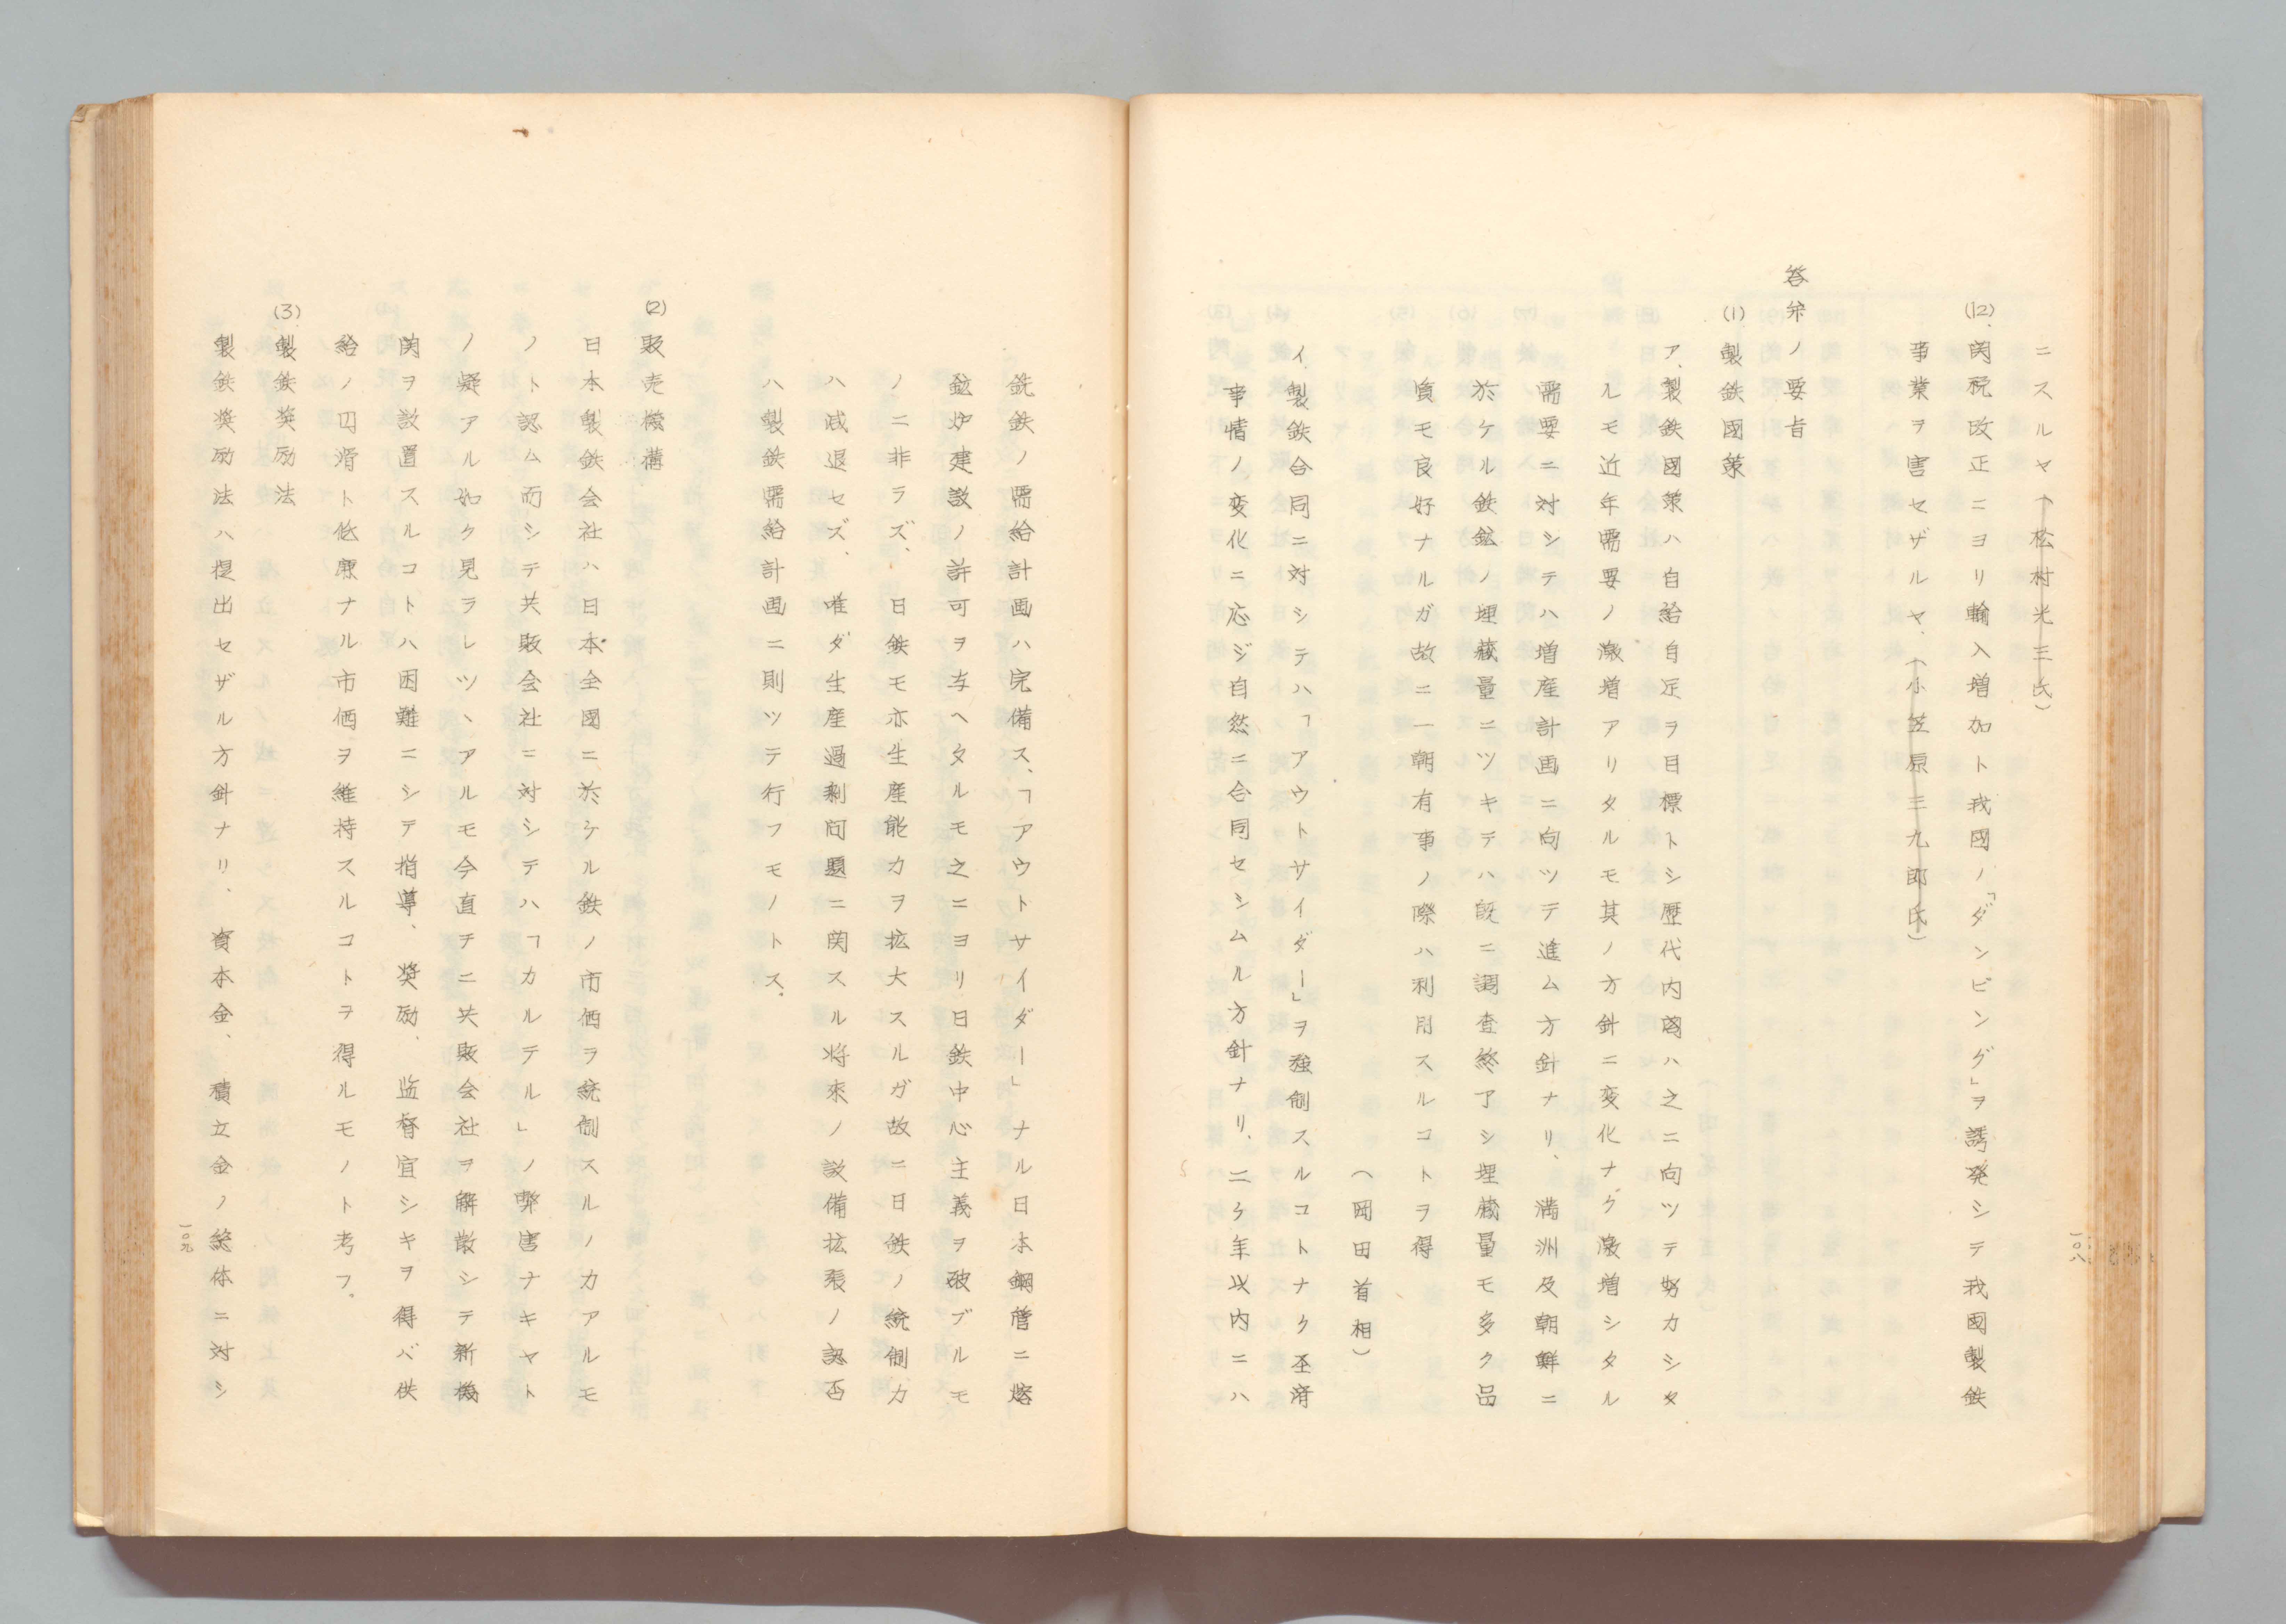 ニスルヤ（松村光三氏）
(12)、関税改正ニヨリ輸入増加ト我國ノ「ダンピング」ヲ誘発シテ我國製鉄
事業ヲ害セザルヤ、（小笠原三九郎氏）
答弁ノ要旨
(1) 製鉄國策
ア、製鉄國策ハ自給自足ヲ目標トシ歴代内閣ハ之ニ向ツテ努力シタ
ルモ近年需要ノ激増アリタルモ其ノ方針ニ変化ナク激増シタル
需要ニ対シテハ増産計画ニ向ツテ進ム方針ナリ、満洲及朝鮮ニ
於ケル鉄鉱ノ埋蔵量ニツキテハ既ニ調査終了シ埋蔵量モ多ク品
質モ良好ナルガ故ニ一朝有事ノ際ハ利用スルコトヲ得
（岡田首相）
イ、製鉄合同ニ対シテハ「アウトサイダー」ヲ強制スルコトナク経済
事情ノ変化ニ応ジ自然ニ合同セシムル方針ナリ、二ケ年以内ニハ
一〇八
銑鉄ノ需給計画ハ完備ス、「アウトサイダー」ナル日本鋼管ニ熔
鉱炉建設ノ許可ヲ与ヘタルモ之ニヨリ日鉄中心主義ヲ破ブルモ
ノニ非ラズ、日鉄モ亦生産能力ヲ拡大スルガ故ニ日鉄ノ統制力
ハ減退セズ、唯ダ生産過剰問題ニ関スル将来ノ設備拡張ノ認否
ハ製鉄需給計画ニ則ツテ行フモノトス。
(2) 販売機構
日本製鉄会社ハ日本全國ニ於ケル鉄ノ市価ヲ統制スルノカアルモ
ノト認ム而シテ共販会社ニ対シテハ「カルテル」ノ弊害ナキヤト
ノ疑アル如ク見ラレツヽアルモ今直チニ共販会社ヲ解散シテ新機
関ヲ設置スルコトハ困難ニシテ指導、奨励、監督宜シキヲ得バ供
給ノ円滑ト低廉ナル市価ヲ維持スルコトヲ得ルモノト考フ。
(3) 製鉄奨励法
製鉄奨励法ハ提出セザル方針ナリ、資本金、積立金ノ総体ニ対シ
一〇九